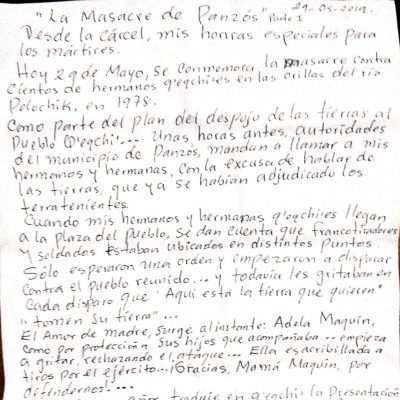 "La Masacre de Panzós" Parte I 29-05-2019.
Desde la cárcel, mis honras especiales para
los mártires.
Hoy 29 de Mayo, se conmemora la masacre contra
Cientos de hermanos q'eqchi'es en las orillas del río
Polochik, en 1978.
Como parte del plan del despojo de las tierras al
Pueblo Q'eqchi'.... Unas horas antes, autoridades
del municipio de Panzós, mandan a llamar a mis
hermanos y hermanas, con la excusa de hablar de
las tierras, que ya se habían adjudicado los
terratenientes.
Cuando mis hermanos y hermanas q'eqchi'es llegan
a la plaza del pueblo, se dan cuenta que francotiradores
y soldados estaban ubicados en distintos puntos.
Sólo esperaron una orden y empezaron a disparar
contra el pueblo reunido... y todavía les gritaban en
Cada disparo que "Aquí está la tierra que quieren"
"tomen su tierra"...
El Amor de madre, surge al instante: Adela Maquin,
como por protección a sus hijos que acompañaba... empieza
a gritar, rechazando el ataque... Ella es acribillada a
tiros por el ejército... ¡Gracias, Mamá Maquin, por
defendernos!...
años traduje en q'eqchi' la Presentación